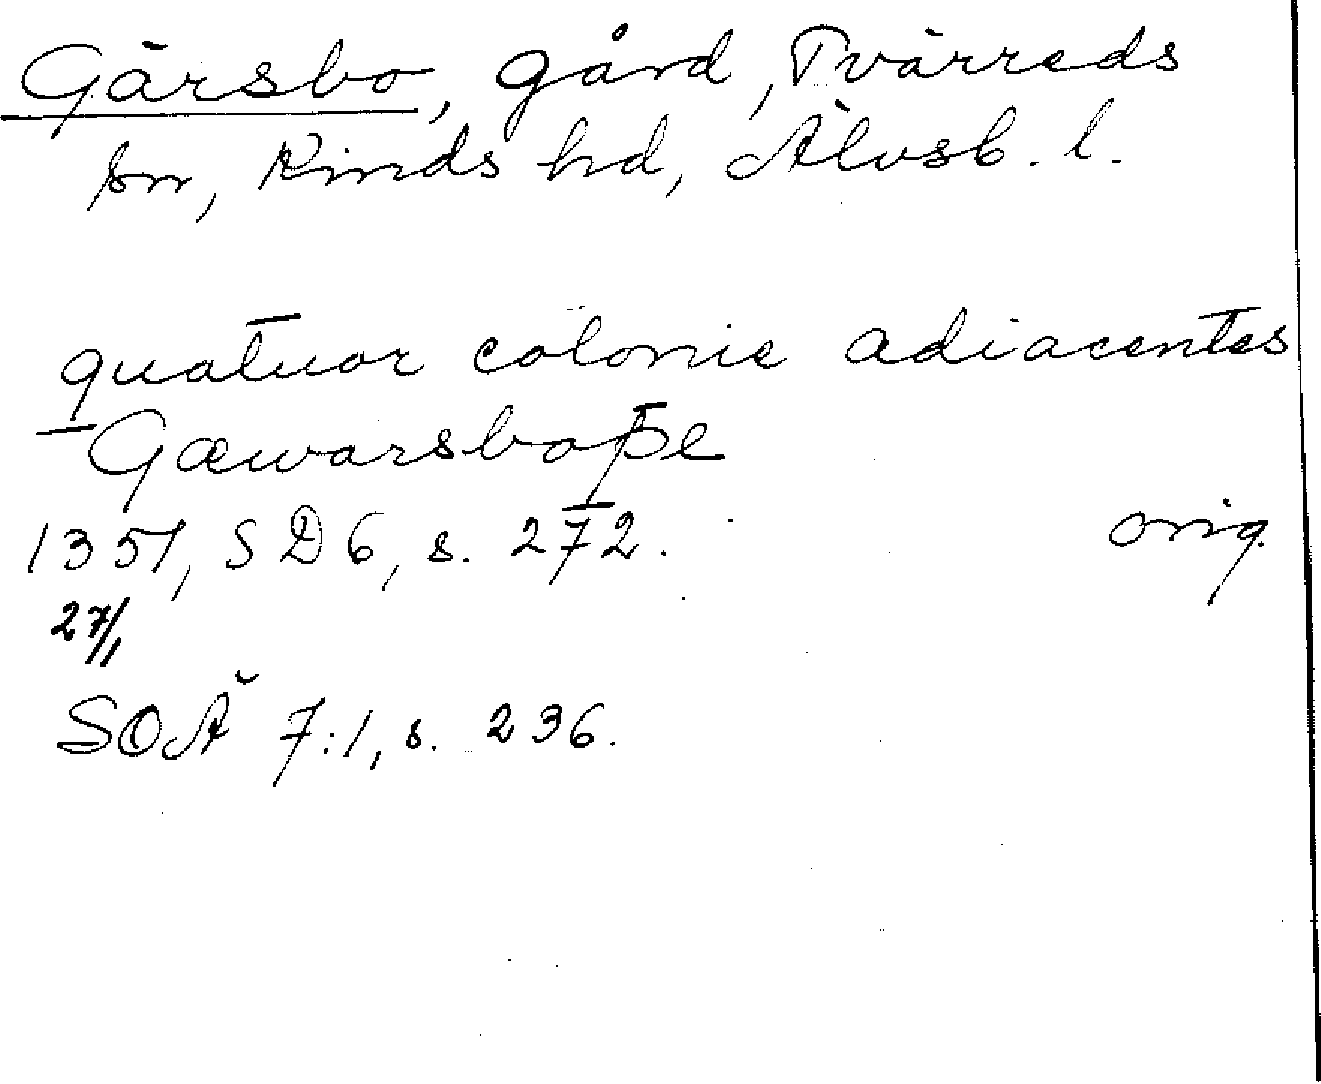 Gärsbo, gård, Tvärreds
sn, Kinds hd, Älvsb. l.
quatuor colonie adiacentes
Gæwarsboþe
1351, SD 6, s. 272. orig.
27/1
SOÄ 7:1, s. 236.